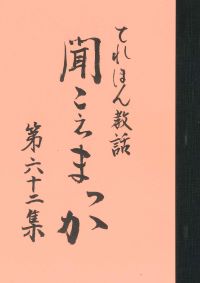 てれほん教話
聞こえまっか
第六十二集